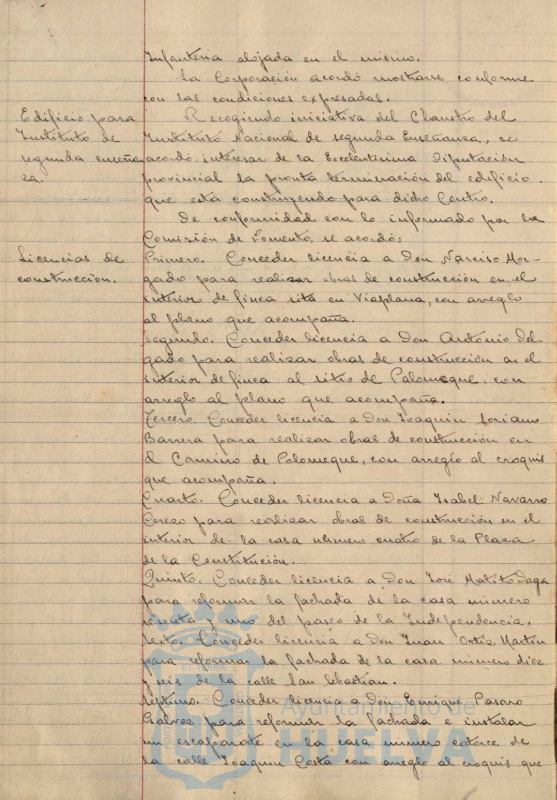 Infantería alojada en el mismo.
La Corporación acordó mostrarse conforme
con las condiciones expresadas.
Edificio para
Instituto de
segunda enseñan
za.
Recogiendo iniciativa del Claustro del
Instituto Nacional de segunda Enseñanza, se
acordó interesar de la Excelentísima Diputación
provincial la pronta terminación del edificio
que está construyendo para dicho Centro.
De conformidad con lo informado por la
Comisión de Fomento, se acordó:
Licencias de
construcción.
Primero. Conceder licencia a Don Narciso Mor-
gado para realizar obras de construcción en el
interior de finca sita en Viaplana, con arreglo
al plano que acompaña.
Segundo. Conceder licencia a Don Antonio Del-
gado para realizar obras de construcción en el
interior de finca al sitio de Palomeque, con
arreglo al plano que acompaña.
Tercero. Conceder licencia a Don Joaquin Soriano
Barrera para realizar obras de construcción en
el Camino de Palomeque, con arreglo al croquis
que acompaña.
Cuarto. Conceder licencia a Doña Isabel Navarro
Cerezo para realizar obras de construcción en el
interior de la casa número cuatro de la Plaza
de la Constitución.
Quinto. Conceder licencia a Don José
para reformar la fachada de la casa número
y uno del paseo de la Independencia.
Sexto. Conceder licencia a Don Juan Ortiz Martín
para reformar la fachada de la casa número diez
y seis de la calle San Sebastian.
Septimo. Conceder licencia a Don Enrique
Galvez para reformar la fachada e instalar
un escaparate en la casa número catorce de
la calle Joaquin Costa con arreglo al croquis que
Ayuntamiento de
HUELVA